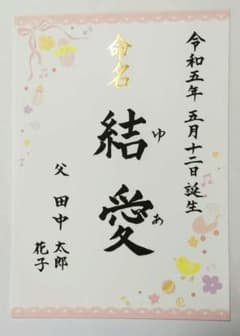 令和五年 五月十二日誕生
命名
結愛
ゆあ
父 田中 太郎
花子